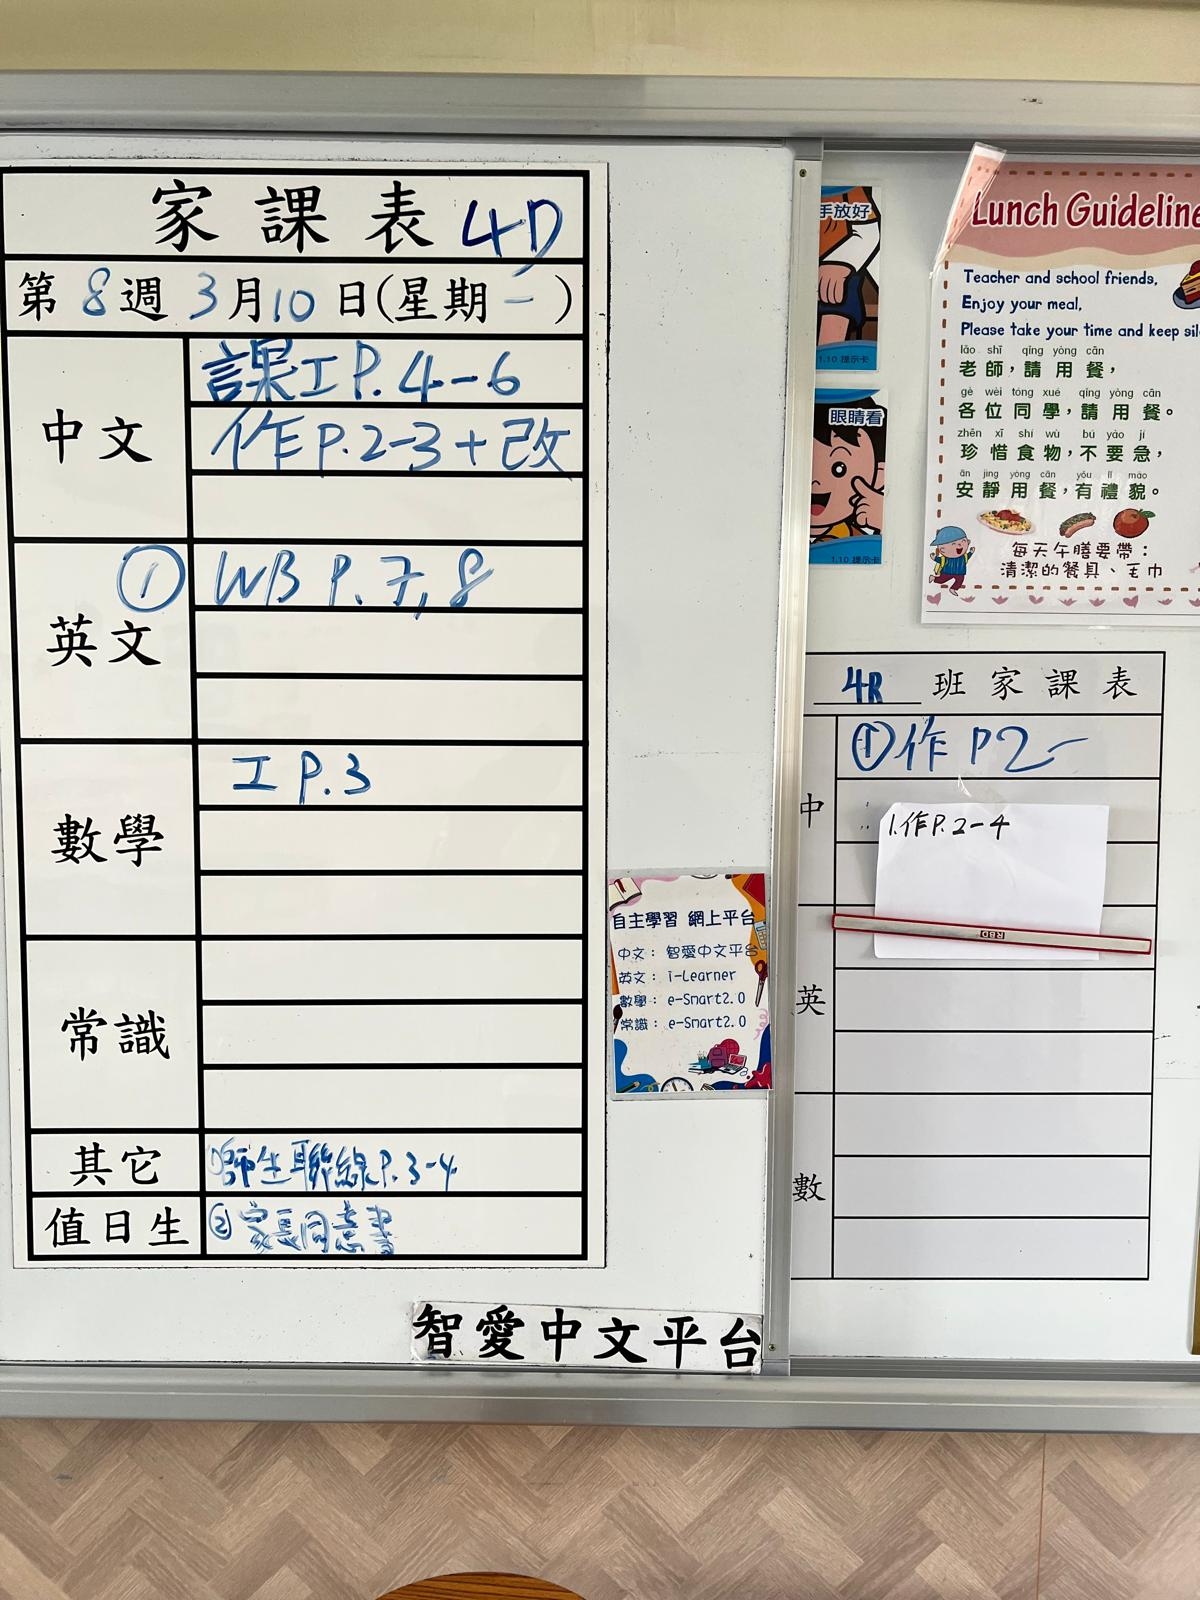 家課表 4D
第 8 週 3 月 10 日(星期 一 )
中文
課工 P. 4-6
作 P. 2-3 + 改
英文
① WB P. 7, 8
數學
工 P. 3
常識
其它
①師生聯線P. 3-4
值日生
②家長同意書
智愛中文平台
自主學習 網上平台
中文： 智愛中文平台
英文： i-Learner
數學： e-Smart2.0
常識： e-Smart2.0
手放好
1.10 提示卡
眼睛看
1.10 提示卡
Lunch Guideline
Teacher and school friends,
Enjoy your meal,
Please take your time and keep sil
lǎo shī qǐng yòng cān
老師，請用餐，
gè wèi tóng xué qǐng yòng cān
各位同學，請用餐。
zhēn xī shí wù bú yào jí
珍惜食物，不要急，
ān jìng yòng cān yǒu lǐ mào
安靜用餐，有禮貌。
每天午膳要帶：
清潔的餐具、毛巾
4R 班家課表
中
①作 P2-
1.作P. 2-4
RBD
英
數